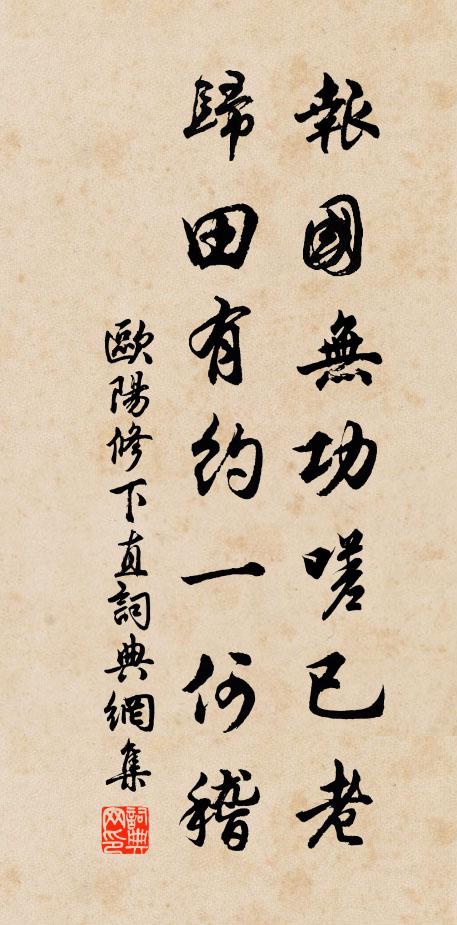 報國無功嗟已老
歸田有約一何稽
歐陽修下直詞典網集
詞典網印